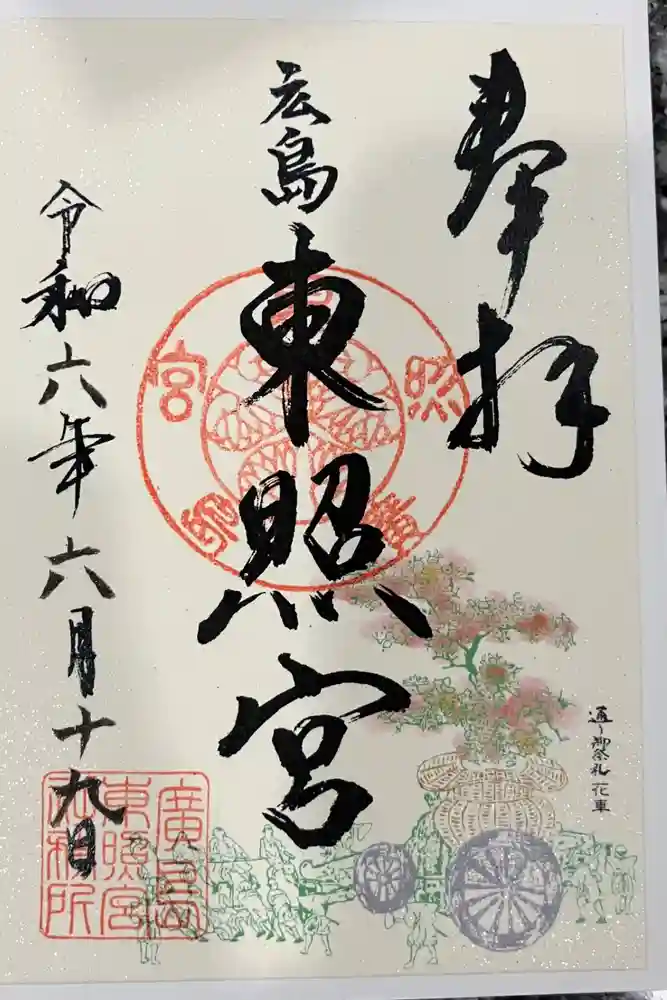 奉拝
広島
東照宮
令和六年六月十九日
通り御祭礼 花車
廣島
東照宮
社務所